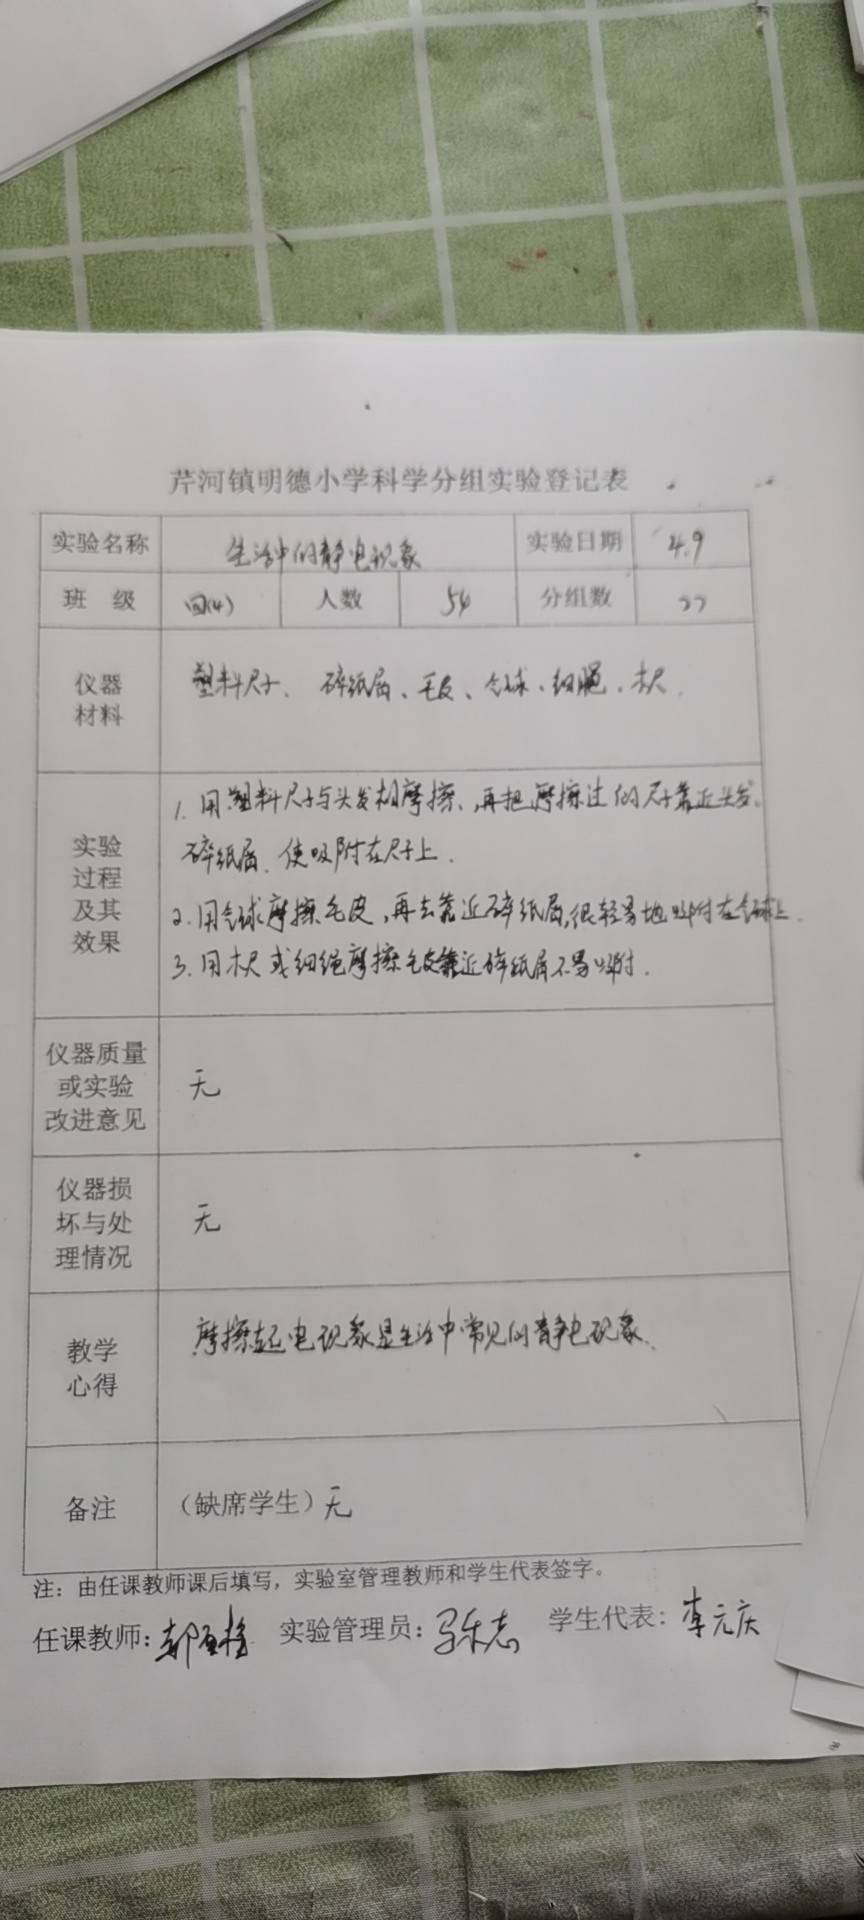 芹河镇明德小学科学分组实验登记表
实验名称 生活中的静电现象 实验日期 4.9
班 级 四(4) 人数 54 分组数
仪器材料 塑料尺子、碎纸屑、毛皮、气球、细绳、木尺.
实验过程及其效果
1. 用塑料尺子与头发相摩擦,再把摩擦过的尺子靠近头发。
碎纸屑.使吸附在尺子上.
2. 用气球摩擦毛皮,再去靠近碎纸屑,很轻易地吸附在气球上.
3. 用木尺或细绳摩擦毛皮靠近碎纸屑不易吸附.
仪器质量或实验改进意见 无
仪器损坏与处理情况 无
教学心得 摩擦起电现象是生活中常见的静电现象.
备注 (缺席学生)无
注:由任课教师课后填写,实验室管理教师和学生代表签字。
任课教师: 实验管理员: 学生代表:李元庆